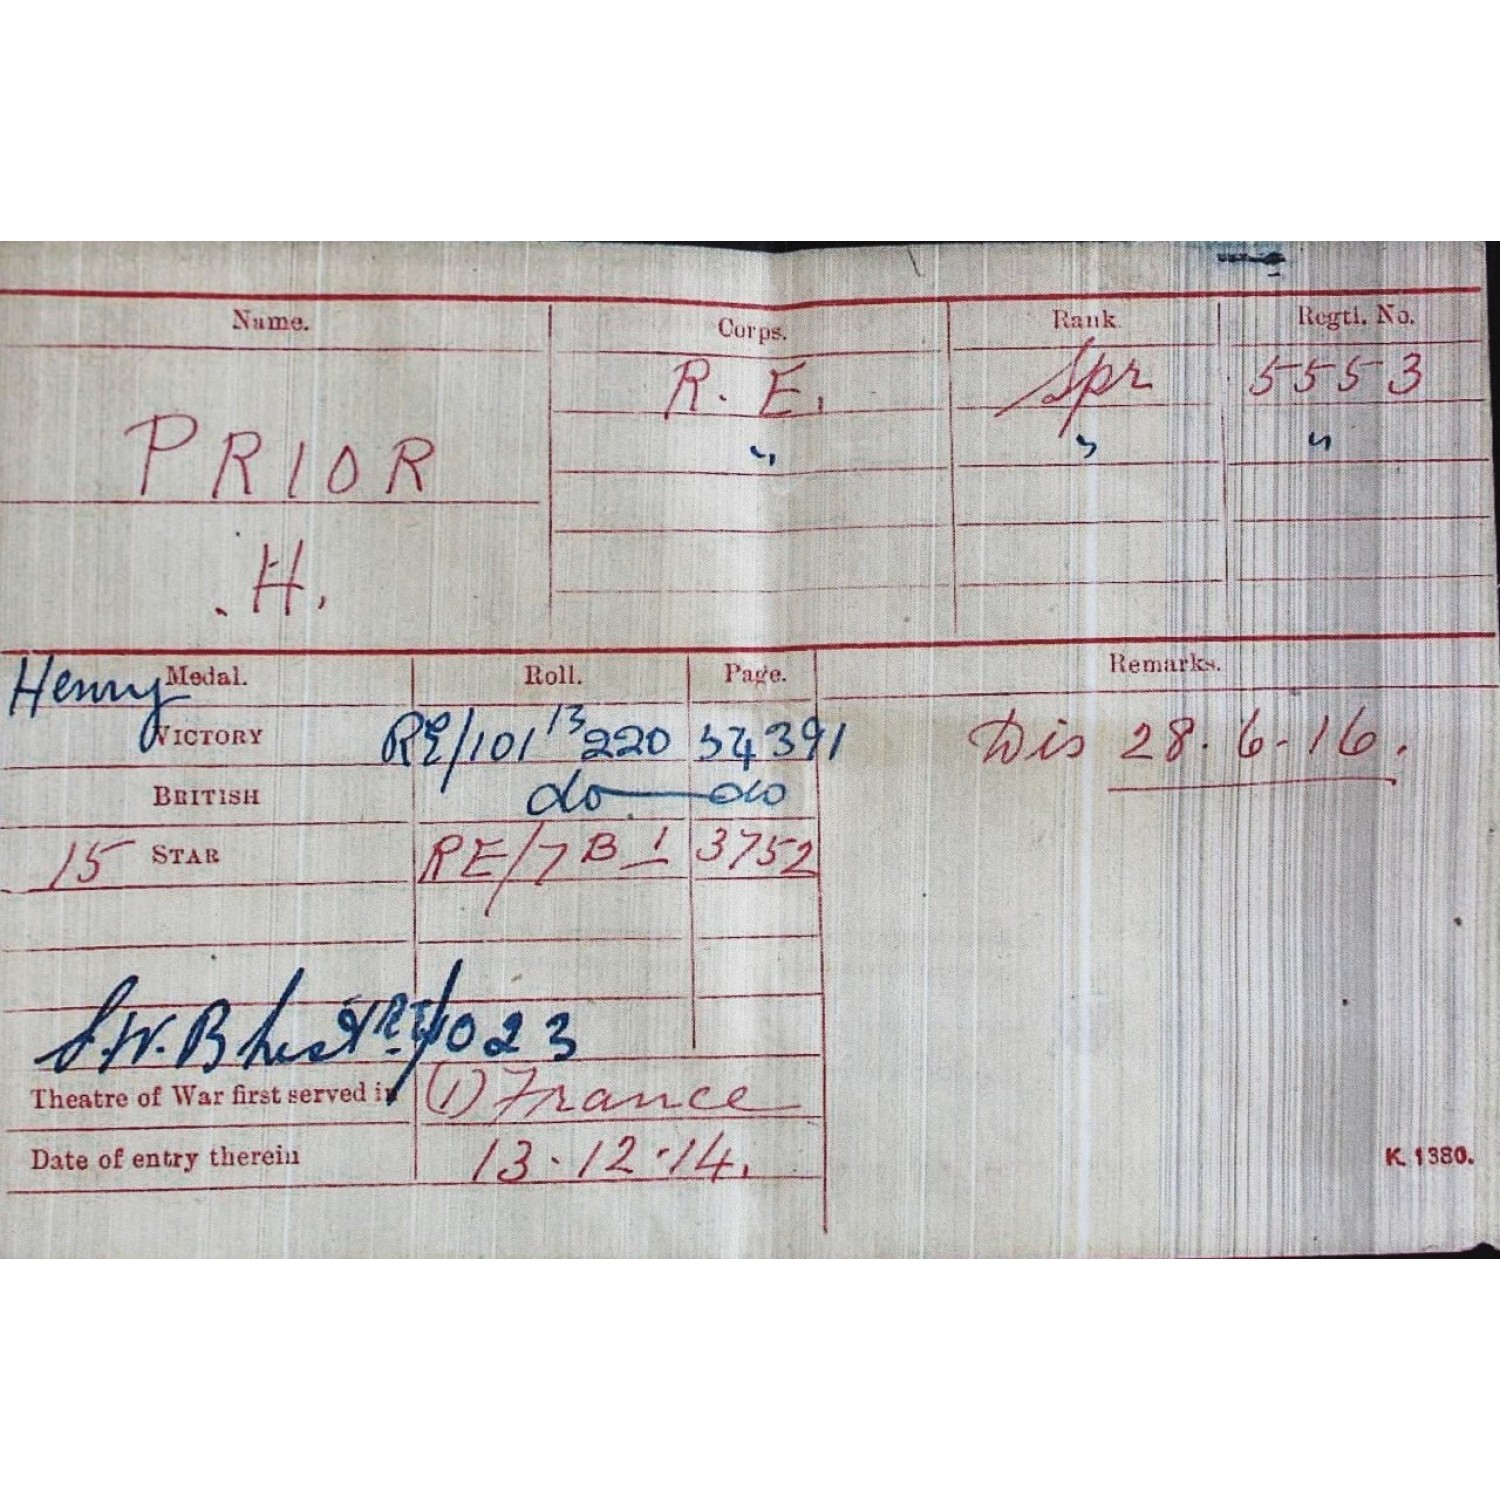 Name. Corps. Rank Regtl. No.
R. E. Spr 5553
PRIOR " " "
. H.
Henry Medal. Roll. Page. Remarks.
VICTORY RE/101 B 220 34391 Dis 28.6-16.
BRITISH do do
15 STAR RE/7 B 1 3752
S.W.B List 1023
Theatre of War first served in (1) France
Date of entry therein 13.12.14.
K. 1380.